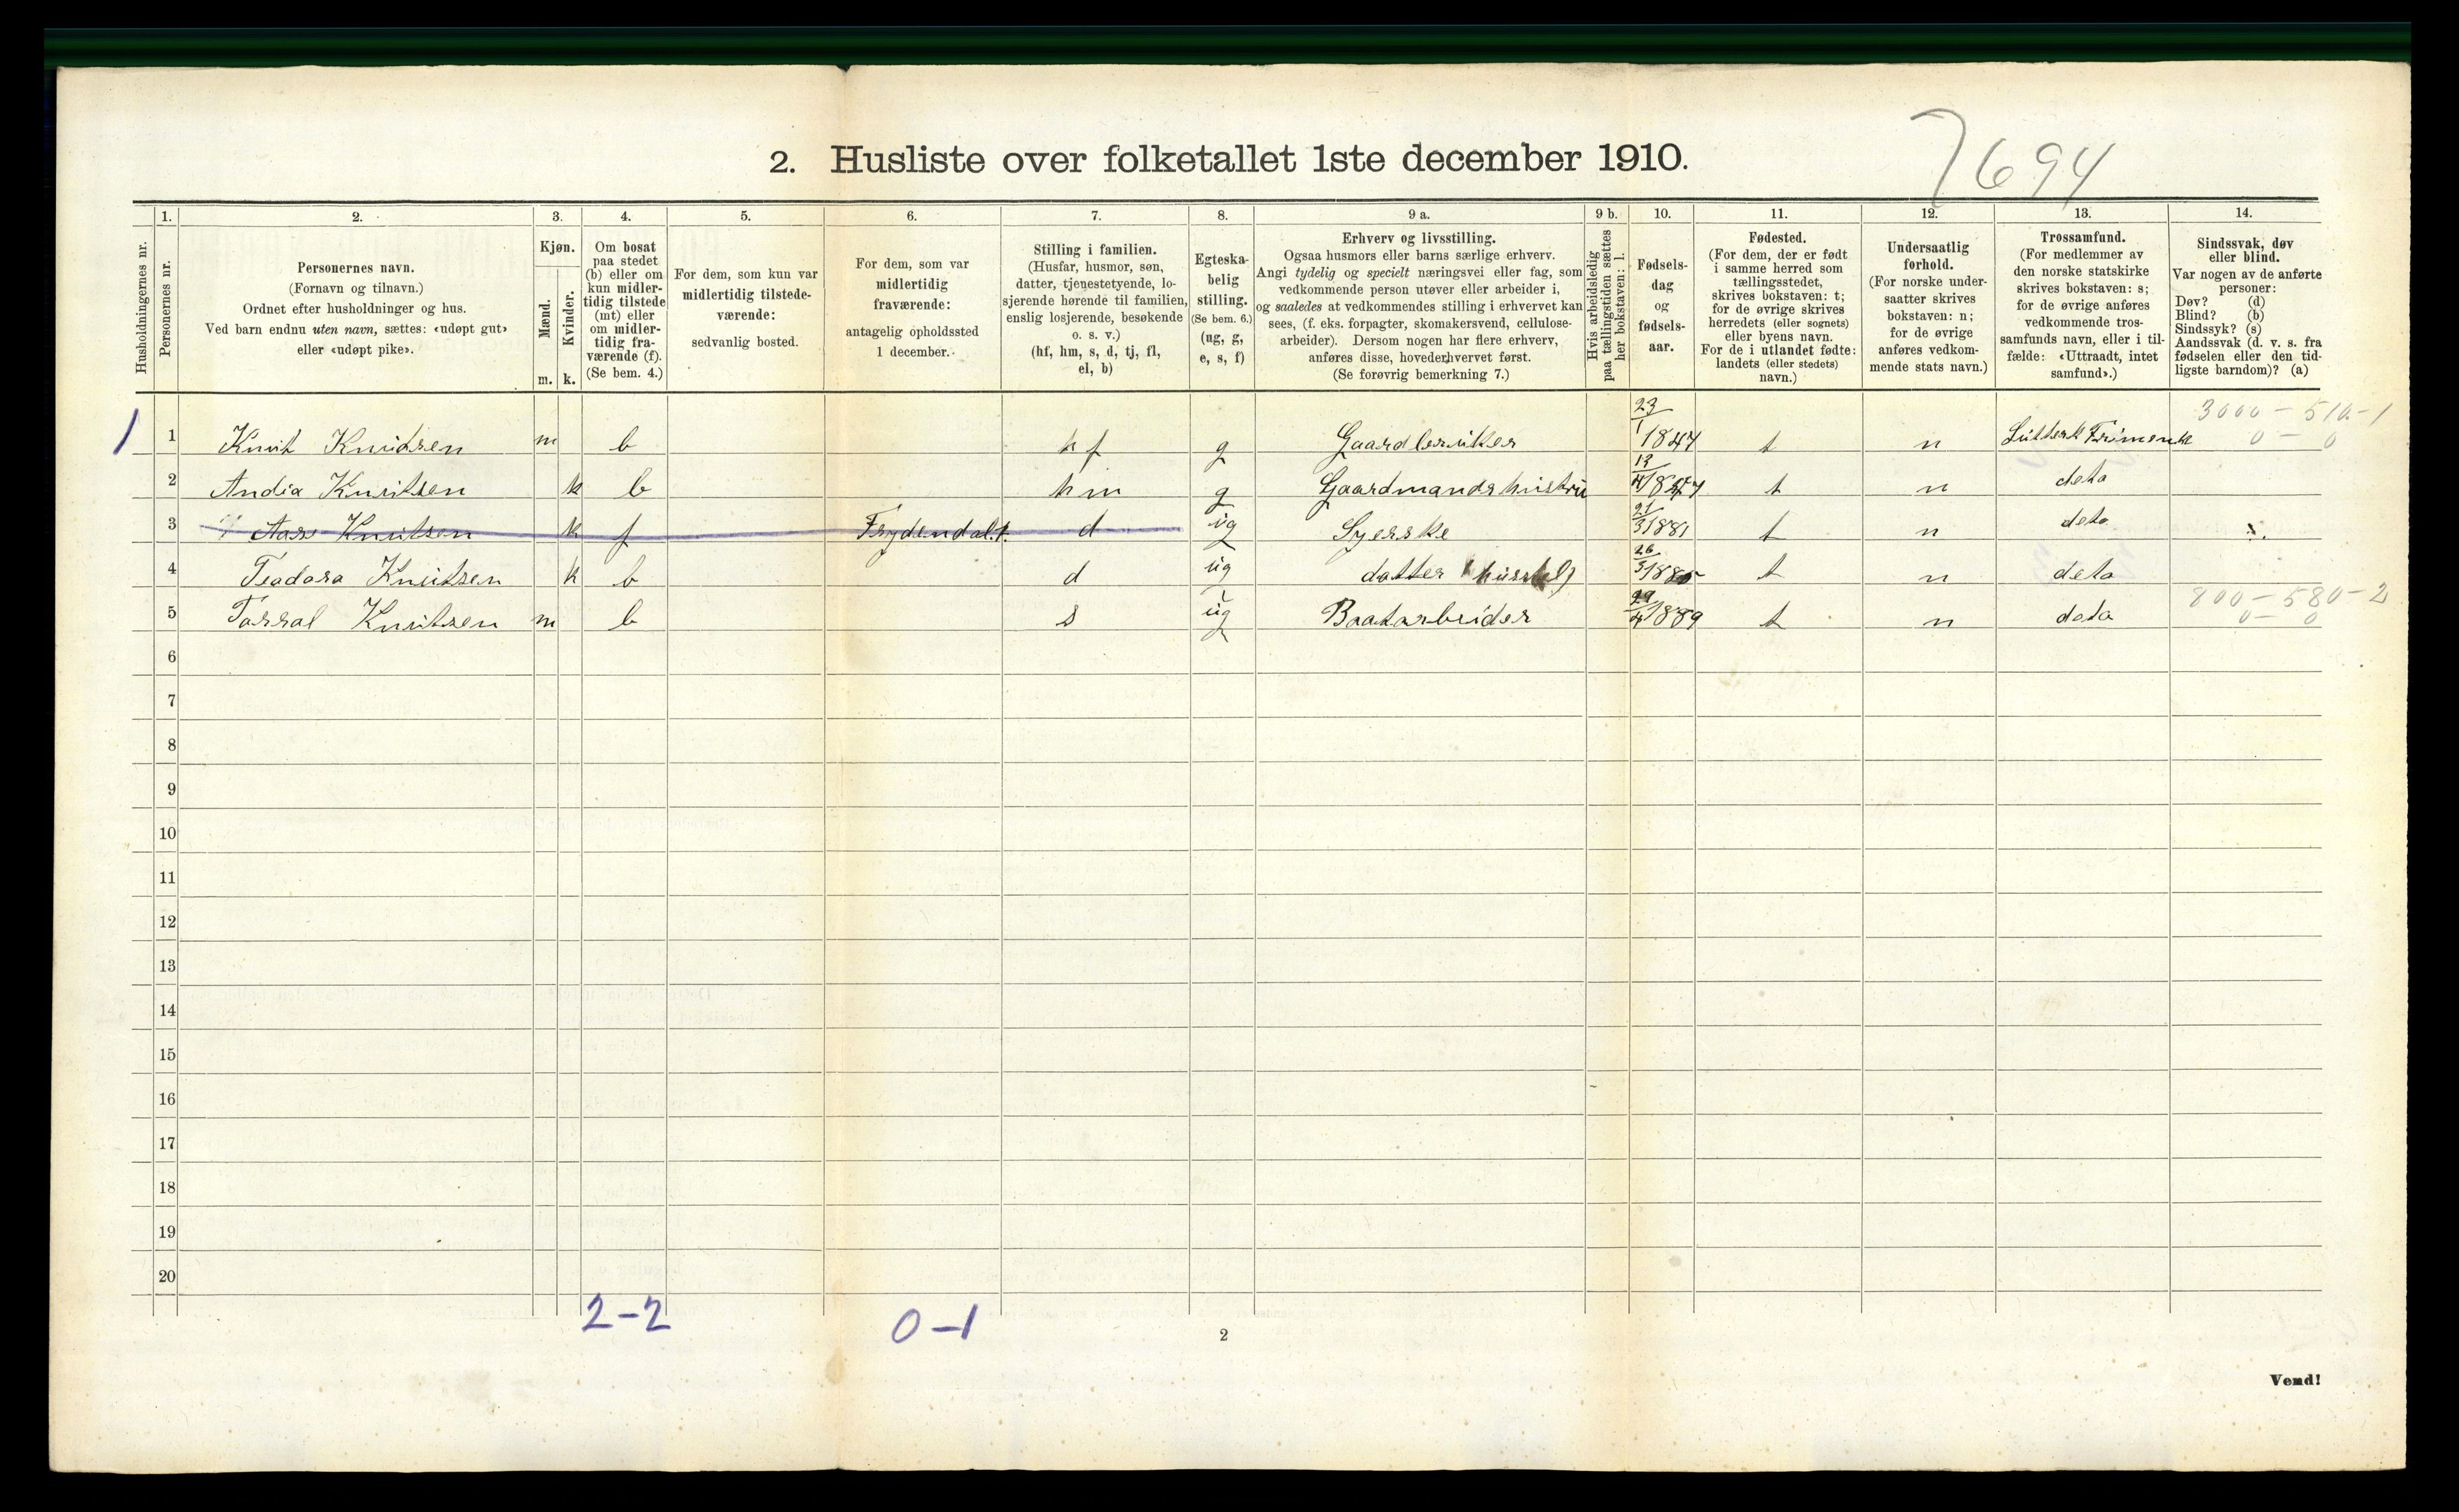 7694
2. Husliste over folketallet 1ste december 1910.
Husholdningernes nr.
1.
Personernes nr.
2.
Personernes navn.
(Fornavn og tilnavn.)
Ordnet efter husholdninger og hus.
Ved barn endnu uten navn, sættes: «udøpt gut»
eller «udøpt pike».
3.
Kjøn.
Mænd.
Kvinder.
m. k.
4.
Om bosat
paa stedet
(b) eller om
kun midler-
tidig tilstede
(mt) eller
om midler-
tidig fra-
værende (f).
(Se bem. 4.)
5.
For dem, som kun var
midlertidig tilstede-
værende:
sedvanlig bosted.
6.
For dem, som var
midlertidig
fraværende:
antagelig opholdssted
1 december.
7.
Stilling i familien.
(Husfar, husmor, søn,
datter, tjenestetyende, lo-
sjerende hørende til familien,
enslig losjerende, besøkende
o. s. v.)
(hf, hm, s, d, tj, fl,
el, b)
8.
Egteska-
belig
stilling.
(Se bem. 6.)
(ug, g,
e, s, f)
9 a.
Erhverv og livsstilling.
Ogsaa husmors eller barns særlige erhverv.
Angi tydelig og specielt næringsvei eller fag, som
vedkommende person utøver eller arbeider i,
og saaledes at vedkommendes stilling i erhvervet kan
sees, (f. eks. forpagter, skomakersvend, cellulose-
arbeider). Dersom nogen har flere erhverv,
anføres disse, hovederhvervet først.
(Se forøvrig bemerkning 7.)
9 b.
Hvis arbeidsledig
paa tællingstiden sættes
her bokstaven: l.
10.
Fødsels-
dag
og
fødsels-
aar.
11.
Fødested.
(For dem, der er født
i samme herred som
tællingsstedet,
skrives bokstaven: t;
for de øvrige skrives
herredets (eller sognets)
eller byens navn.
For de i utlandet fødte:
landets (eller stedets)
navn.)
12.
Undersaatlig
forhold.
(For norske under-
saatter skrives
bokstaven: n;
for de øvrige
anføres vedkom-
mende stats navn.)
13.
Trossamfund.
(For medlemmer av
den norske statskirke
skrives bokstaven: s;
for de øvrige anføres
vedkommende tros-
samfunds navn, eller i til-
fælde: «Uttraadt, intet
samfund».)
14.
Sindssvak, døv
eller blind.
Var nogen av de anførte
personer:
Døv? (d)
Blind? (b)
Sindssyk? (s)
Aandssvak (d. v. s. fra
fødselen eller den tid-
ligste barndom)? (a)
3000 - 510 - 1
0 - 0
1 1 Knut Knudsen m b hf g Gaardbruker 23/1 1847 t n Luthersk Frimenh
2 Andia Knutsen k b hm g Gaardmandshustru 13/4 1847 t n deto
3 Knutsen k f Frydendal t. d ug Syerske 21/3 1881 t n deto
4 Teadora Knutsen k b d ug datter 26/5 188 t n deto
800 - 580 - 2
0 - 0
5 Torral Knutsen m b s ug Baatarbeider 29/4 1889 t n deto
6
7
8
9
10
11
12
13
14
15
16
17
18
19
20
2-2
0-1
2
Vend!